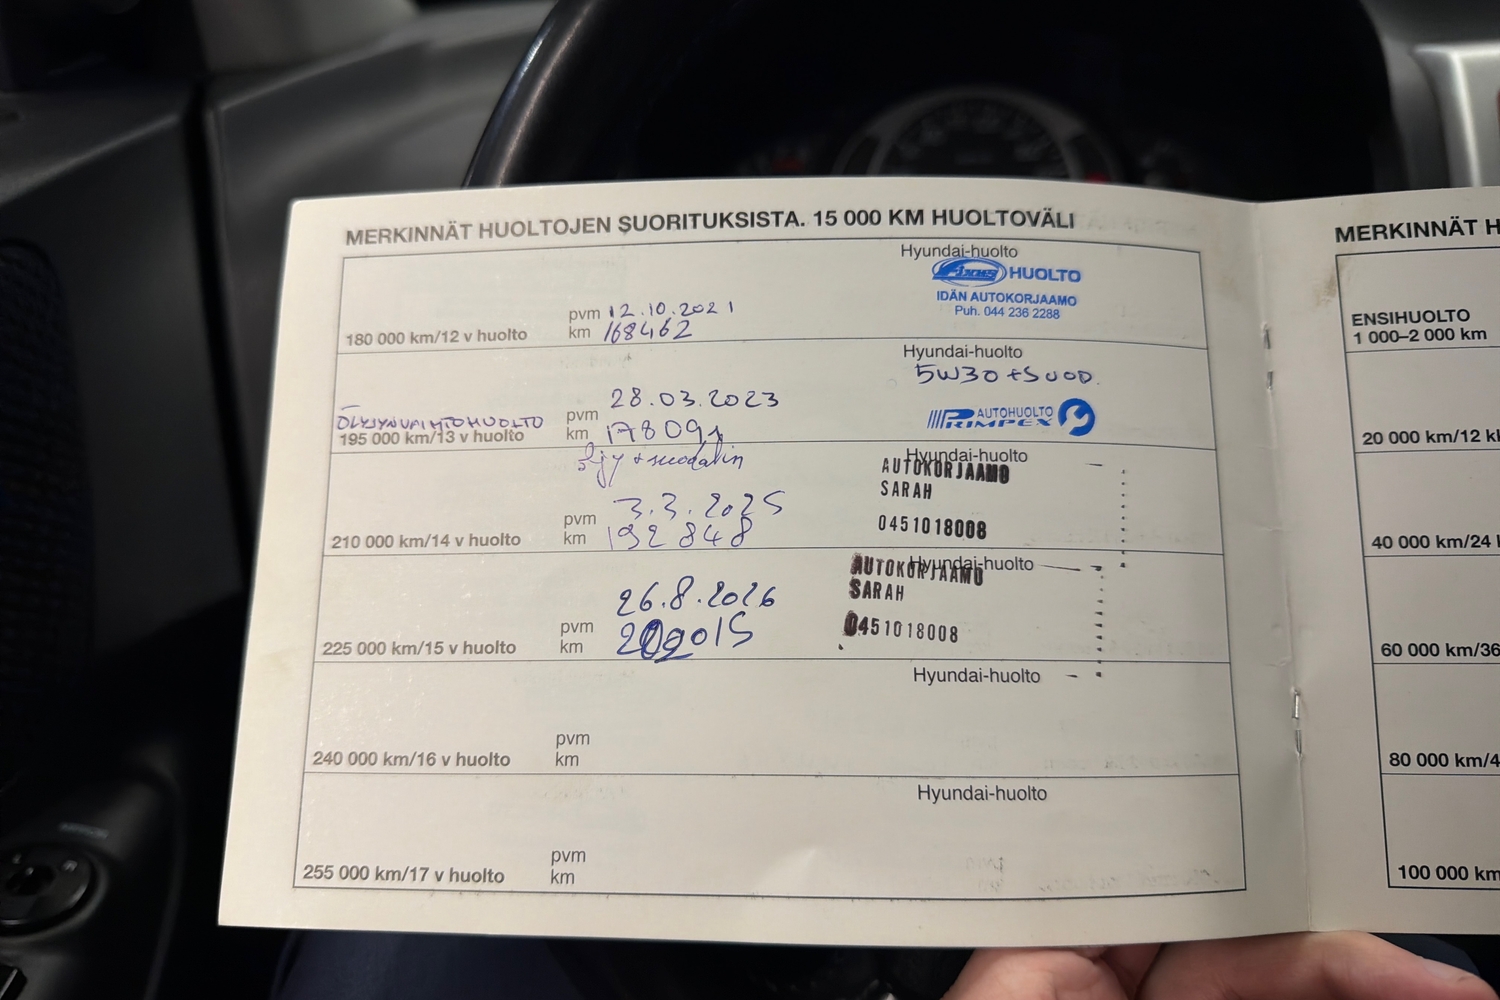 MERKINNÄT HUOLTOJEN SUORITUKSISTA. 15 000 KM HUOLTOVÄLI
Hyundai-huolto
HUOLTO
IDÄN AUTOKORJAAMO
Puh. 044 236 2288
pvm 12.10.2021
180 000 km/12 v huolto km 168462
Hyundai-huolto
5W30 + SUOD.
28.03.2023
ÖLJYNVAIHTOHUOLTO pvm
AUTOHUOLTO
PRIMPEX
195 000 km/13 v huolto km 178091
öljy + suodatin
Hyundai-huolto
AUTOKORJAAMO
SARAH
pvm 3.3.2025
0451018008
210 000 km/14 v huolto km 192848
Hyundai-huolto
AUTOKORJAAMO
SARAH
26.8.2026
pvm
0451018008
225 000 km/15 v huolto km
Hyundai-huolto
pvm
240 000 km/16 v huolto km
Hyundai-huolto
pvm
255 000 km/17 v huolto km
MERKINNÄT
ENSIHUOLTO
1 000–2 000 km
20 000 km/12
40 000 km/24
60 000 km/36
80 000 km/4
100 000 km